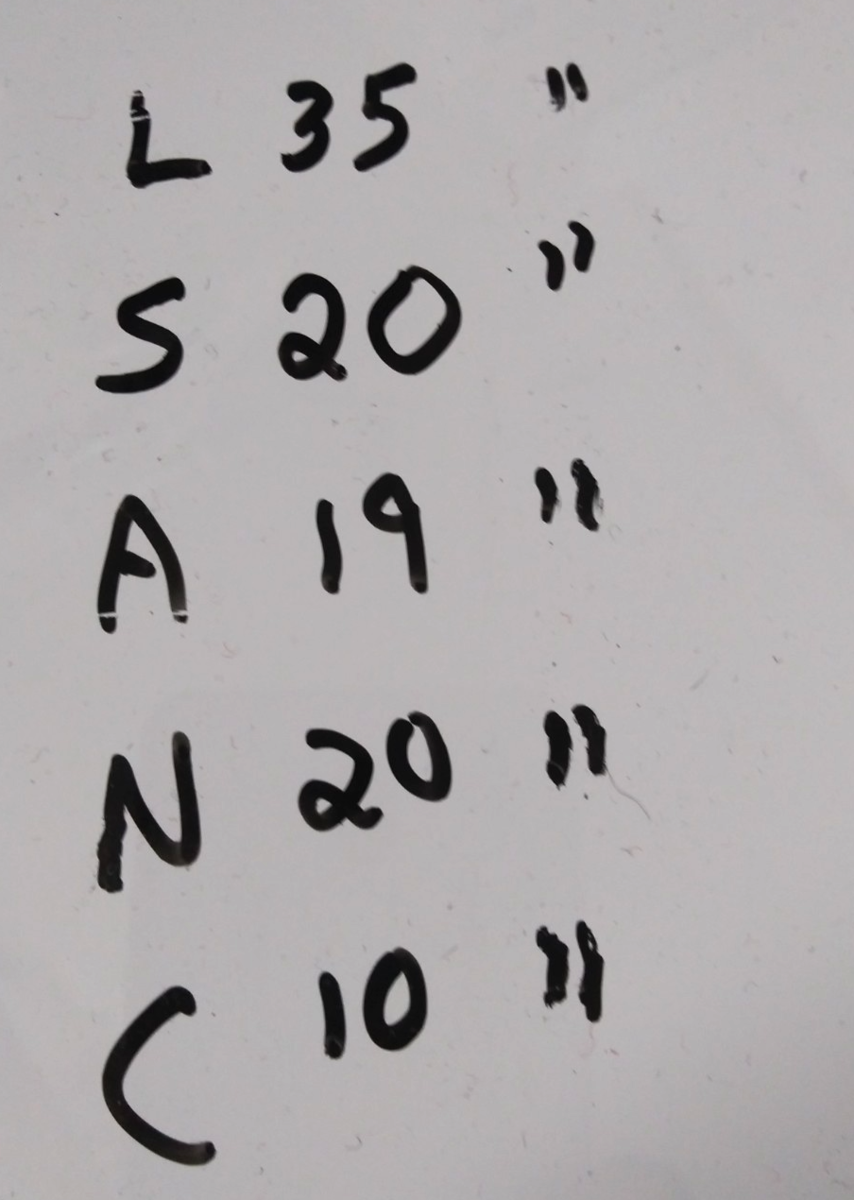 L 35 "
S 20 "
A 19 "
N 20 "
C 10 "